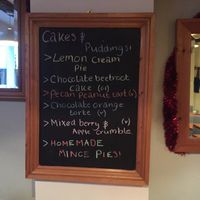 Cakes &
Puddings!
> Lemon Cream
Pie
> Chocolate beetroot
cake (GF)
> Pecan Peanut tart (v)
> Chocolate orange
torte (v)
> Mixed berry & (v)
Apple crumble
> HOMEMADE
MINCE PIES!